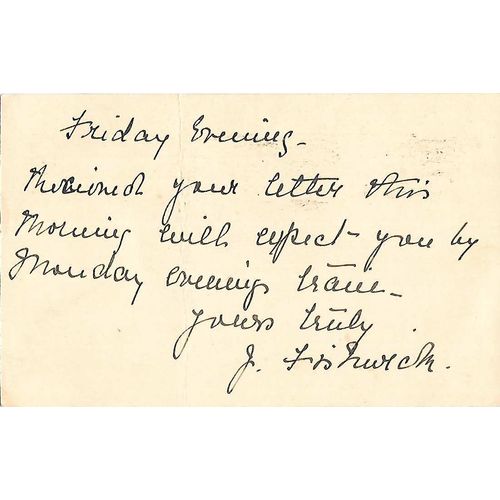 Friday Evening -
Received your letter this
Morning will expect - you by
Monday evenings train -
Yours truly
J. Fishwick.